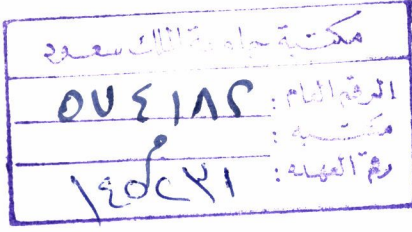 مكتبة جامعة الملك سعود
الرقم العام: ٥٧٤١٨٢
مكتبه: م
رقم العهده: ١٤٥٢٣١